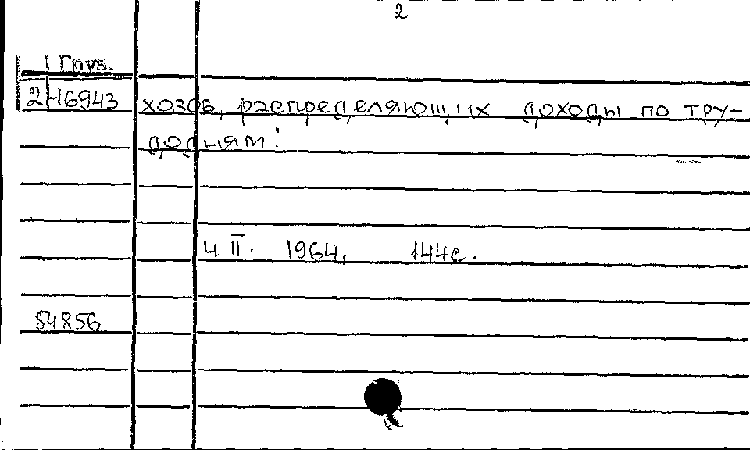 2
Груз.
2-16943 хозов, распределяющих доходы по тру-
додням!
ч II. 1964, 144с.
54856